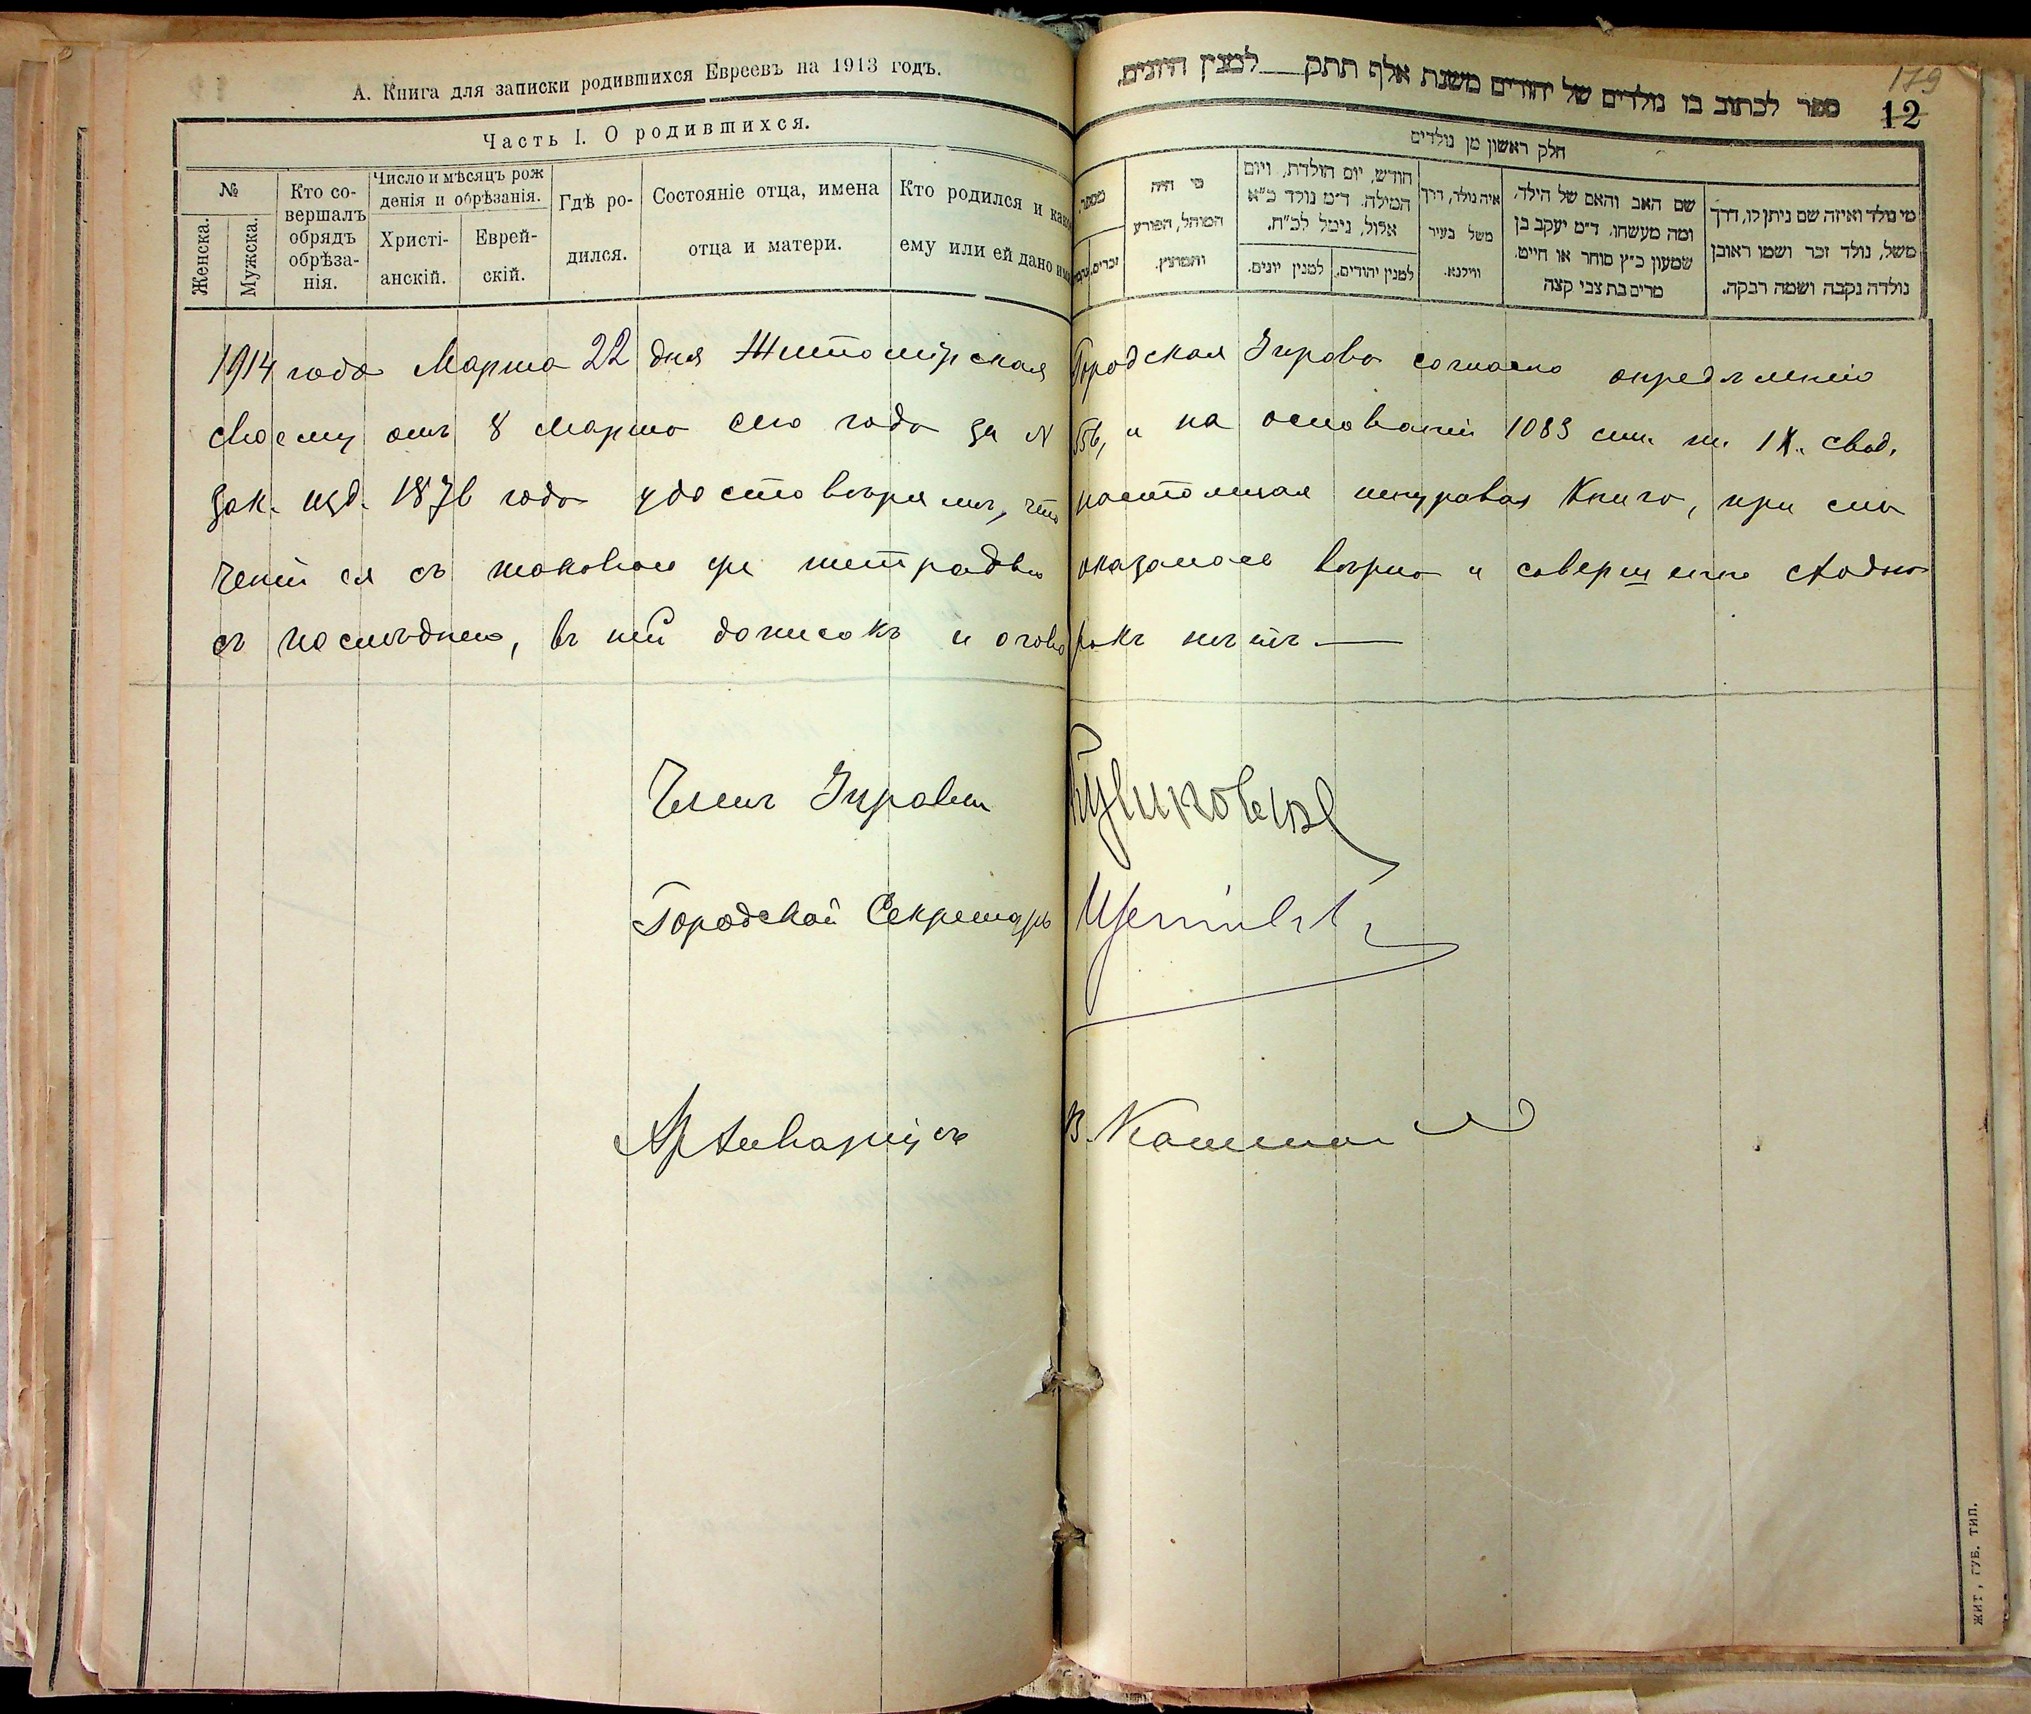 А. Книга для записки родившихся Евреевъ на 1913 годъ.
Часть I. О родившихся.
№
Женска.
Мужска.
Кто со-
вершалъ
обрядъ
обрѣза-
нія.
Число и мѣсяцъ рож
денія и обрѣзанія.
Христі-
анскій.
Еврей-
скій.
Гдѣ ро-
дился.
Состояніе отца, имена
отца и матери.
Кто родился и какое
ему или ей дано имя
179
12
ספר לכתוב בו נולדים של יהודים משנת אלף תתק למנין היונים.
חלק ראשון מן נולדים
מספר.
זכרים.
מי היה
המוהל, הפורע
והמוצץ.
חודש, יום הולדת, ויום
המילה. ד״מ נולד כ״א
אלול, נימל לכ״ח.
למנין יונים.
למנין יהודים.
איה נולד, דרך
משל בעיר
ווילנא.
שם האב והאם של הילד.
ומה מעשהו. ד״מ יעקב בן
שמעון כ״ץ סוחר או חייט.
מרים בת צבי קצה
מי נולד ואיזה שם ניתן לו, דרך
משל, נולד זכר ושמו ראובן
נולדה נקבה ושמה רבקה.
1914 года Марта 22 дня Житомірская Городская Управа согласно опредѣленію
своему отъ 8 Марта сего года за № и на основаніи 1083 ст. т. IX. свод.
зак. изд. 1876 года удостовѣряетъ, что настоящая шнуровая Книга, при сли
ченіи ея съ таковою же тетрадью оказалась вѣрна и совершенно сходна
съ послѣднею, въ ней дописокъ и оговорокъ нѣтъ.
Членъ Управы
Городской Секретарь
Архиваріусъ
ЖИТ. ГУБ. ТИП.